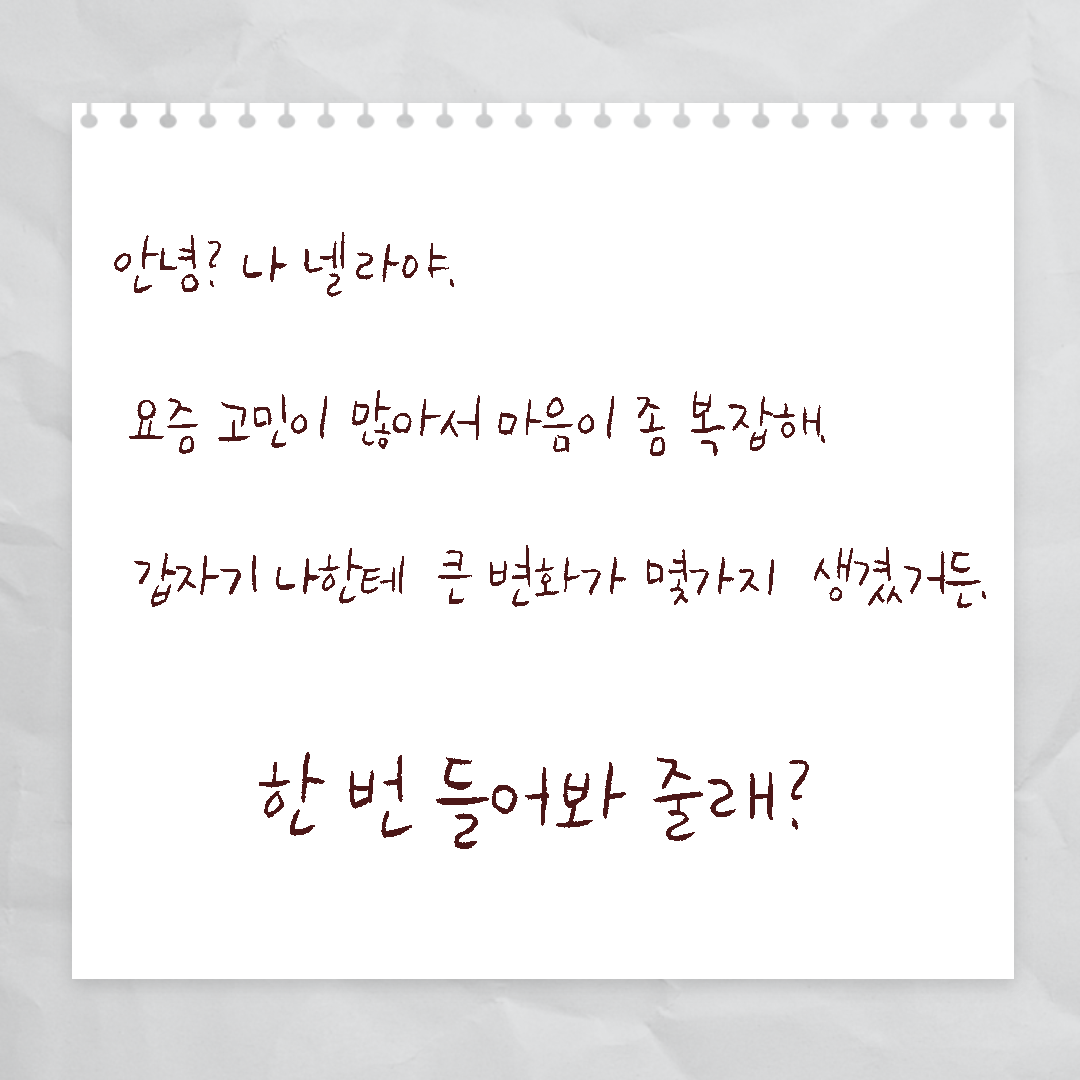 안녕? 나 넬라야.
요즘 고민이 많아서 마음이 좀 복잡해.
갑자기 나한테 큰 변화가 몇가지 생겼거든.
한 번 들어봐 줄래?